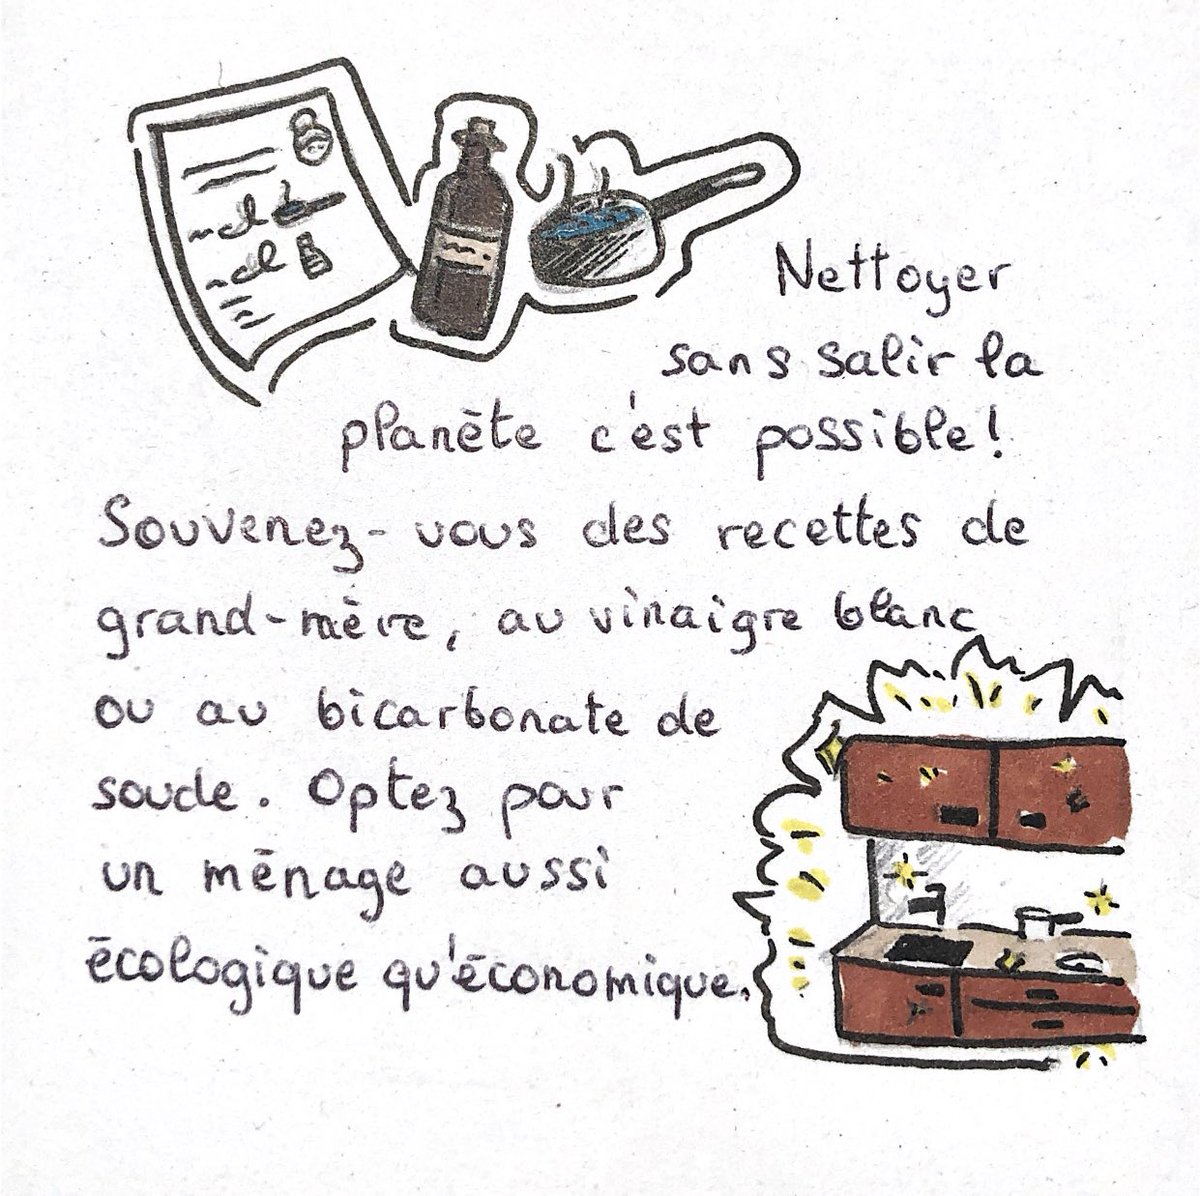 Nettoyer
sans salir la
planète c'est possible!
Souvenez-vous des recettes de
grand-mère, au vinaigre blanc
ou au bicarbonate de
soude. Optez pour
un ménage aussi
écologique qu'économique.